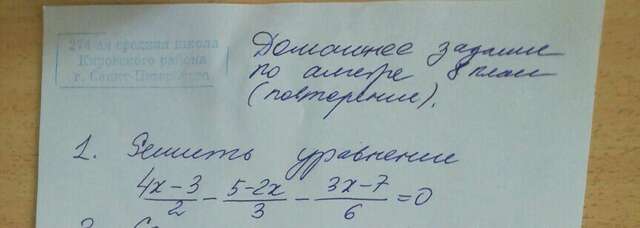 274-ая средняя школа
Кировского района
г. Санкт-Петербурга
Домашнее задание
по алгебре 8 класс
(повторение).
1. Решить уравнение
(4x-3)/2 - (5-2x)/3 - (3x-7)/6 = 0